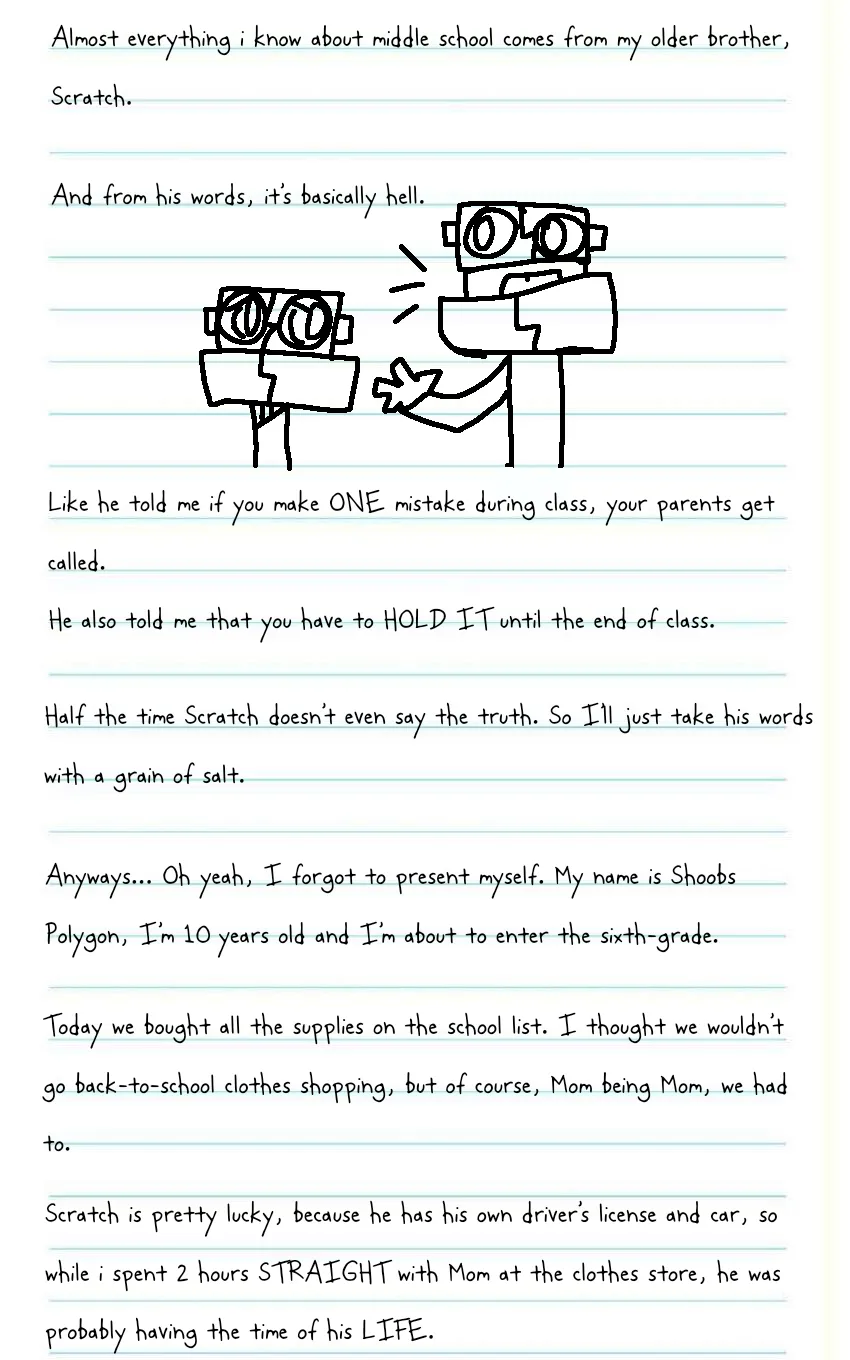 Almost everything i know about middle school comes from my older brother,
Scratch.
And from his words, it's basically hell.
Like he told me if you make ONE mistake during class, your parents get
called.
He also told me that you have to HOLD IT until the end of class.
Half the time Scratch doesn't even say the truth. So I'll just take his words
with a grain of salt.
Anyways... Oh yeah, I forgot to present myself. My name is Shoobs
Polygon, I'm 10 years old and I'm about to enter the sixth-grade.
Today we bought all the supplies on the school list. I thought we wouldn't
go back-to-school clothes shopping, but of course, Mom being Mom, we had
to.
Scratch is pretty lucky, because he has his own driver's license and car, so
while i spent 2 hours STRAIGHT with Mom at the clothes store, he was
probably having the time of his LIFE.